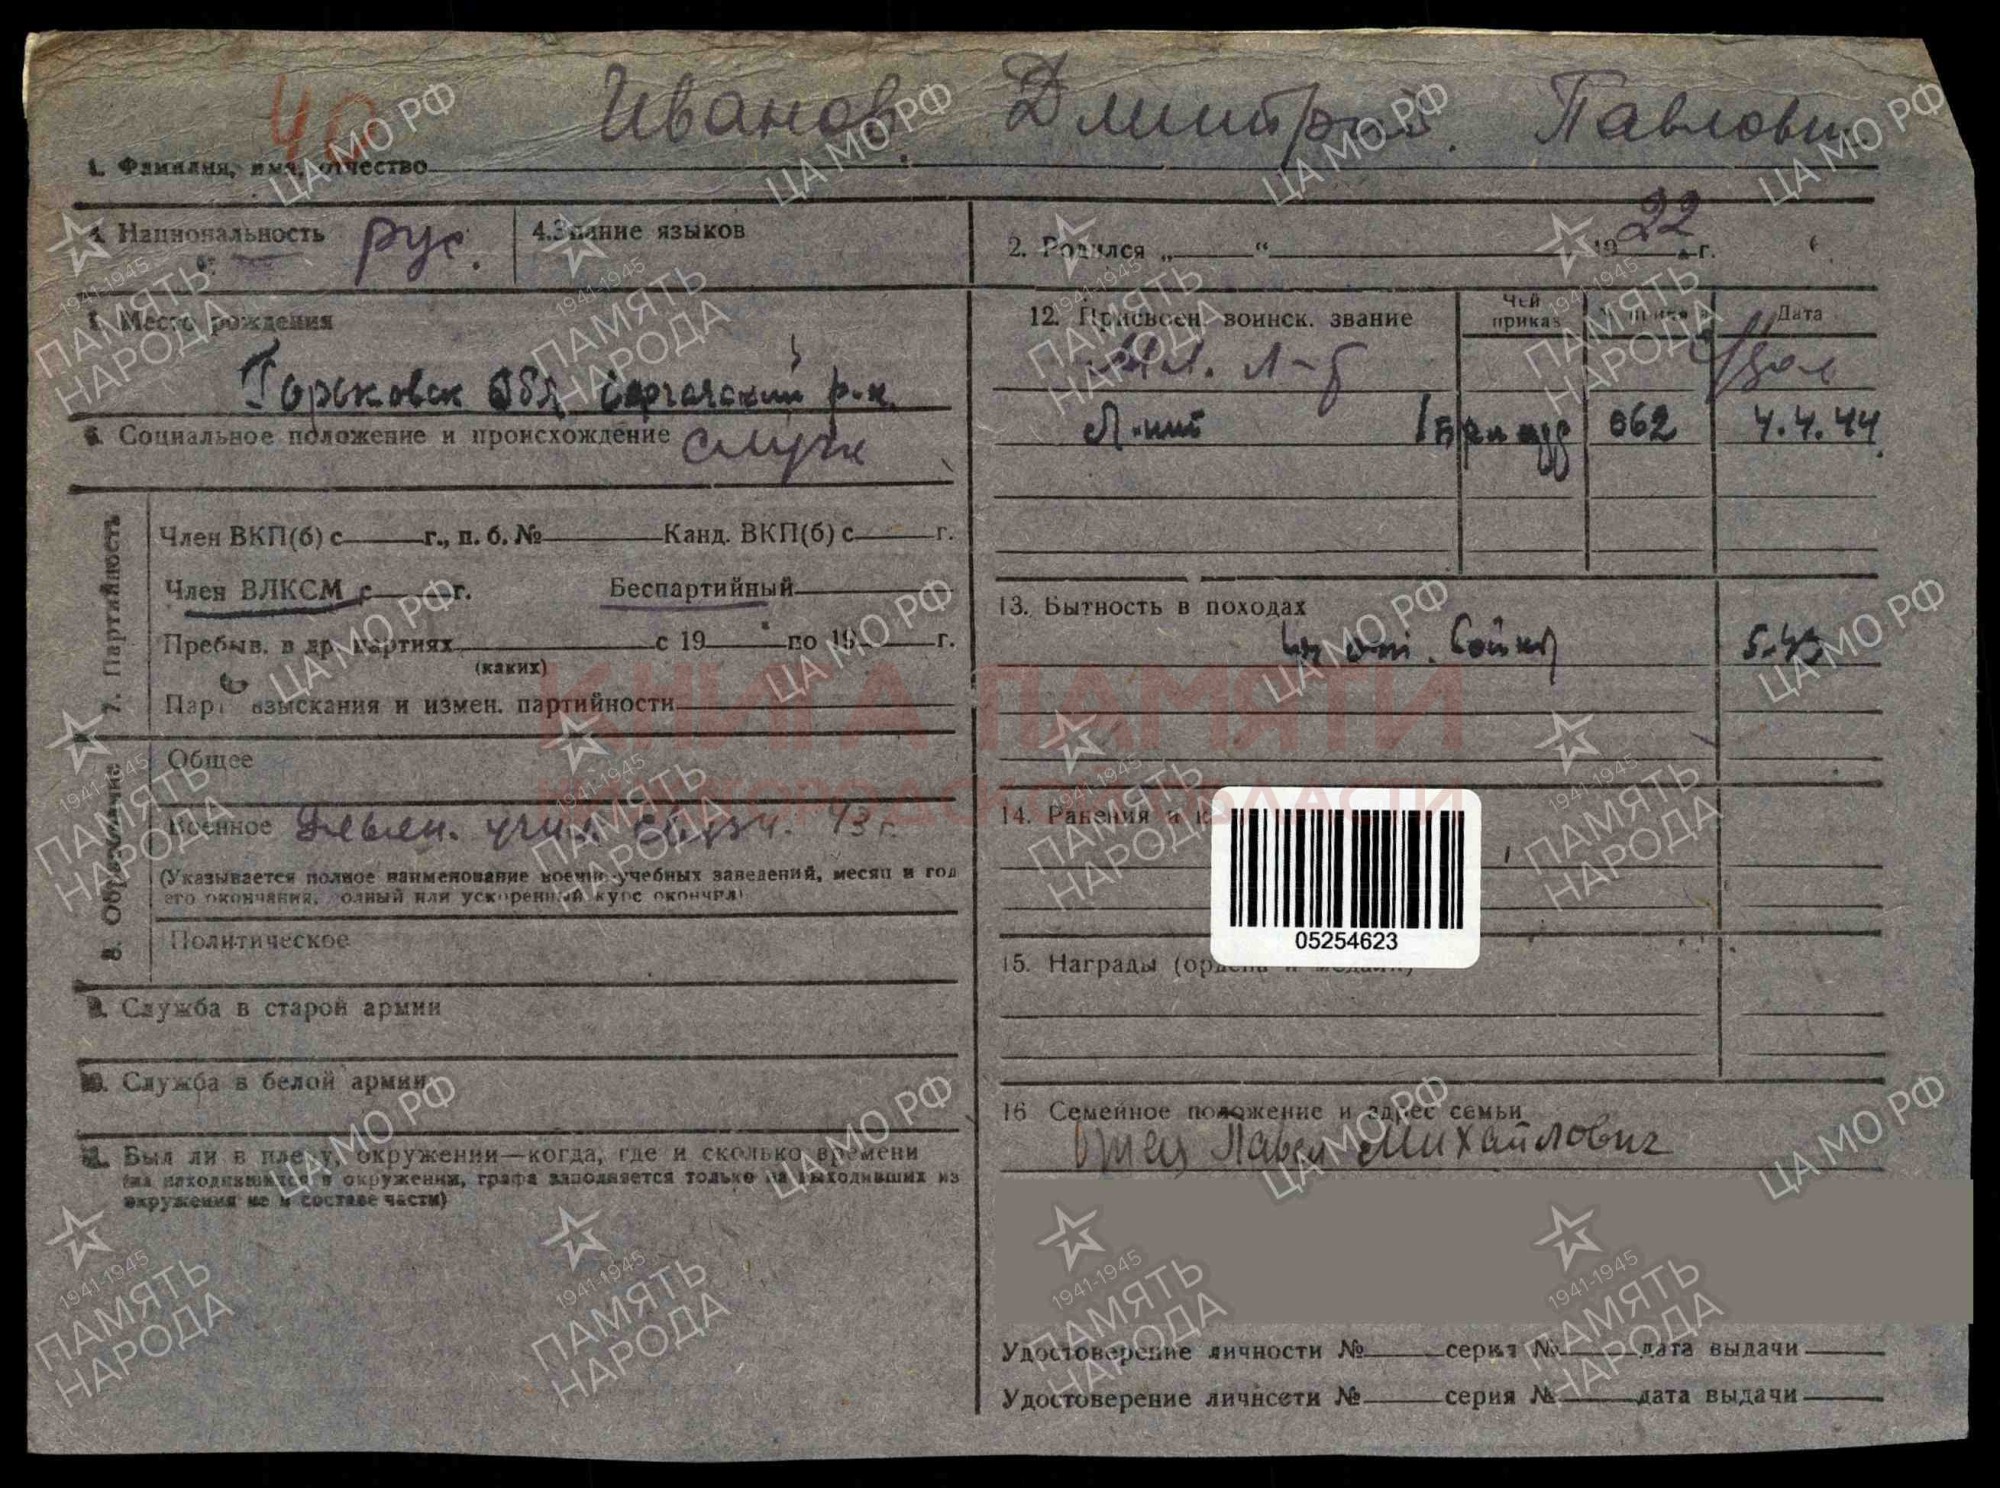 40
Иванов Дмитрий Павлович
1. Фамилия, имя, отчество
3. Национальность рус.
4. Знание языков
2. Родился „ “ 1922 г.
5. Место рождения
Горьковск обл Сергачский р-н.
6. Социальное положение и происхождение служ
7. Партийность
Член ВКП(б) с г., п. б. № Канд. ВКП(б) с г.
Член ВЛКСМ с г. Беспартийный
Пребыв. в др. партиях с 19 по 19 г.
(каких)
Парт взыскания и измен. партийности
8. Образование
Общее
Военное Ульян. учил. связи. 43 г.
(Указывается полное наименование военно-учебных заведений, месяц и год
его окончания, полный или ускоренный курс окончил)
Политическое
9. Служба в старой армии
10. Служба в белой армии
11. Был ли в плену, окружении—когда, где и сколько времени
(на находившихся в окружении, графа заполняется только на выходивших из
окружения не в составе части)
12. Присвоен. воинск. звание Чей приказ № приказа Дата
Мл. л-т
Л-нит 062 4.4.44
13. Бытность в походах
5.43
14. Ранения и к
05254623
15. Награды (ордена и медали)
16 Семейное положение и адрес семьи
Отец Павел Михайлович
Удостоверение личности № серия № дата выдачи
Удостоверение личности № серия № дата выдачи
КНИГА ПАМЯТИ
НИЖЕГОРОДСКОЙ ОБЛАСТИ
ЦА МО РФ
1941-1945
ПАМЯТЬ
НАРОДА